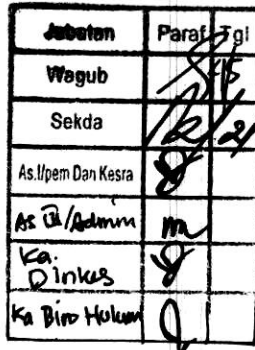 Jabatan Paraf Tgl
Wagub
Sekda
As.I/pem Dan Kesra
As III/Admin
Ka. Dinkes
Ka Biro Hukum